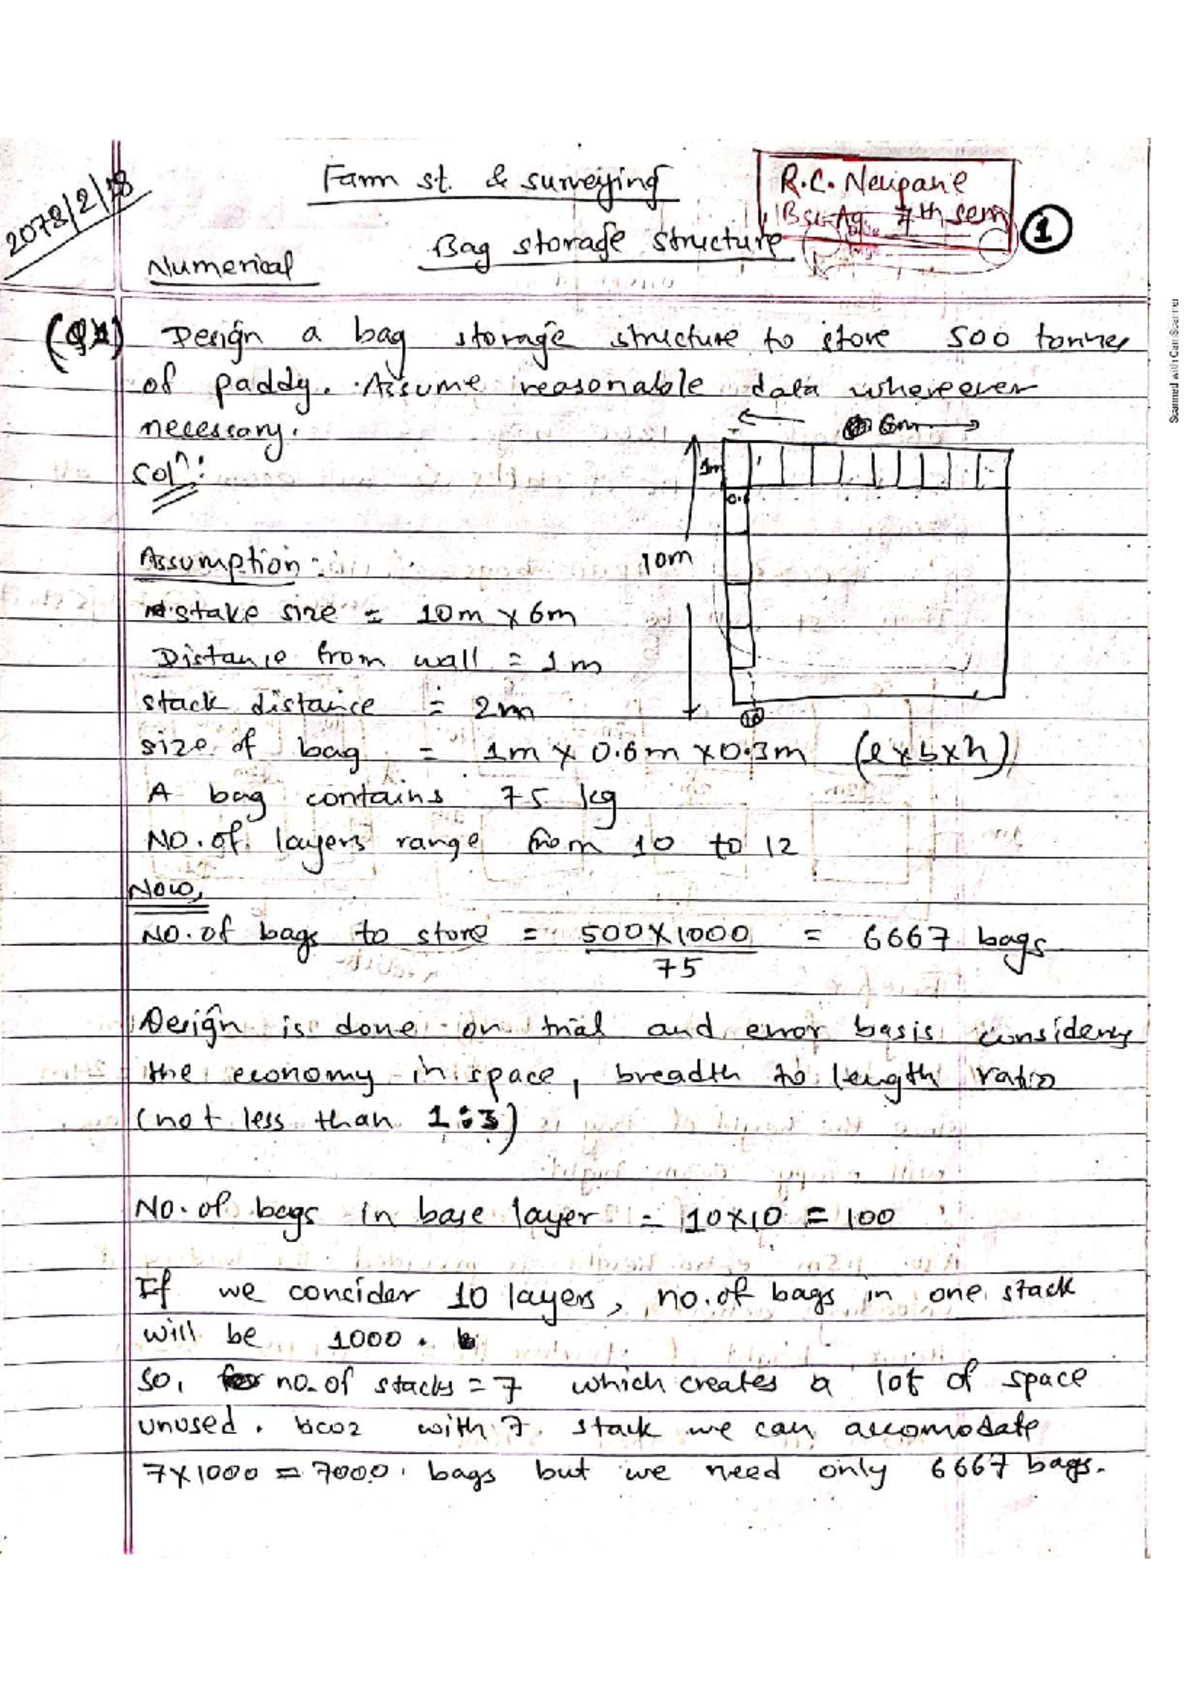 2078/2/18
Farm st. & surveying
R.C. Neupane
Bsc.Ag. 7th sem
1
Bag storage structure
Numerical
Design a bag storage structure to store 500 tonnes
of paddy. Assume reasonable data whereever
necessary.
6m
1m
Solⁿ:
0.6
10m
Assumption:
stake size = 10m x 6m
Distance from wall = 1m
stack distance = 2m
10
size of bag = 1m x 0.6m x 0.3m (l x b x h)
A bag contains 75 kg
No. of layers range from 10 to 12
Now,
No. of bags to store = 500X1000 = 6667 bags
75
Design is done on trial and error basis considering
the economy in space, breadth to length ratio
(not less than 1:3)
No. of bags in base layer = 10X10 = 100
If we concider 10 layers, no. of bags in one stack
will be 1000.
So, no. of stacks = 7 which creates a lot of space
unused. bcoz with 7 stack we can accomodate
7X1000 = 7000 bags but we need only 6667 bags.
Scanned with CamScanner